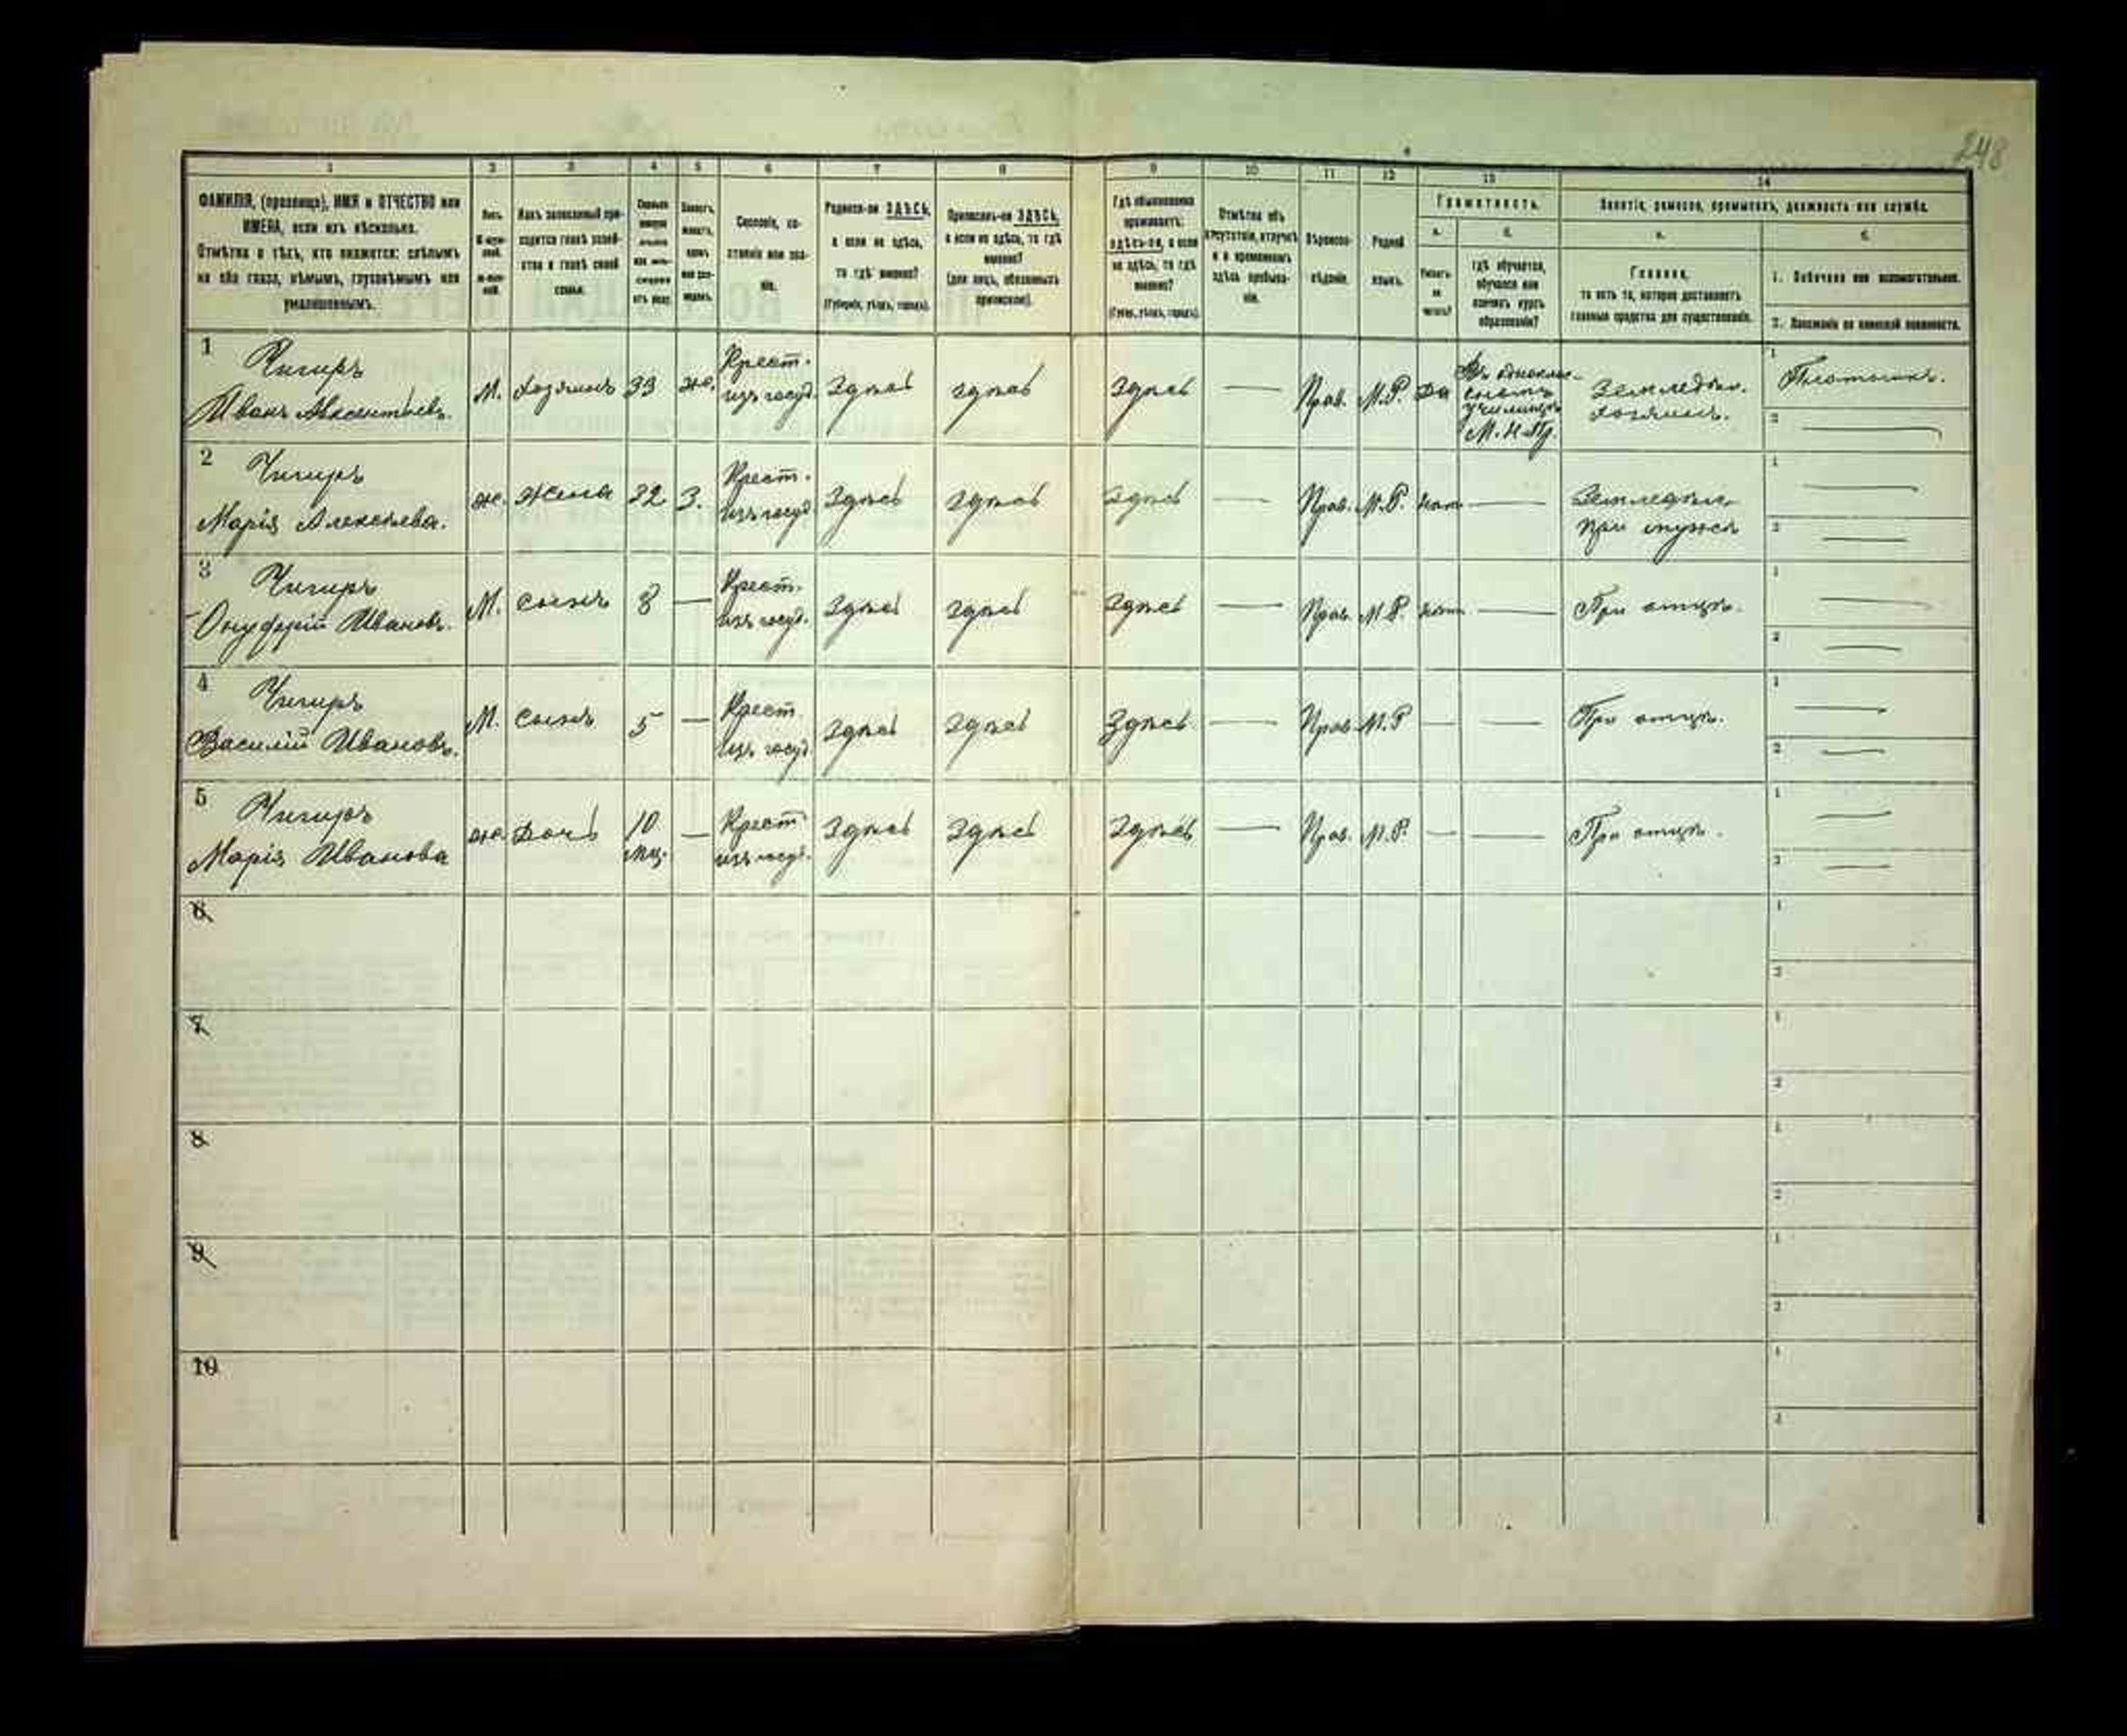 248
1 2 3 4 5 6 7 8 9 10 11 12 13 14
ФАМИЛІЯ, (прозвище), ИМЯ и ОТЧЕСТВО или
ИМЕНА, если ихъ нѣсколько.
Отмѣтка о тѣхъ, кто окажется: слѣпымъ
на оба глаза, нѣмымъ, глухонѣмымъ или
умалишеннымъ.
Полъ.
Какъ записанный при-
ходится главѣ хозяй-
ства и главѣ своей
семьи.
Сословіе, со-
стояніе или зва-
ніе.
Родился-ли ЗДѢСЬ,
а если не здѣсь,
то гдѣ именно?
(Губернія, уѣздъ, городъ).
Приписанъ-ли ЗДѢСЬ,
а если не здѣсь, то гдѣ
именно?
(для лицъ, обязанныхъ
припискою).
Гдѣ обыкновенно
проживаетъ:
здѣсь-ли, а если
не здѣсь, то гдѣ
именно?
(Губер., уѣздъ, городъ).
Отмѣтка объ
отсутствіи, отлучкѣ
и о временномъ
здѣсь пребыва-
ніи.
Вѣроиспо-
вѣданіе.
Родной
языкъ.
Грамотность.
а.
б.
Умѣетъ
ли
читать?
Гдѣ обучается,
обучался или
кончилъ курсъ
образованія?
Занятіе, ремесло, промыселъ, должность или служба.
а.
б.
Главное,
то есть то, которое доставляетъ
главныя средства для существованія.
1. Побочное или вспомогательное.
2. Положеніе по воинской повинности.
1 Чигирь
Иванъ Авксентіевъ.
М. Хозяинъ 33 ж.
Крест.
изъ госуд.
Здѣсь здѣсь Здѣсь — Прав. М.Р. Да
Въ одноклас-
сномъ
училищѣ
М.Н.Пр.
Земледѣл.
хозяинъ.
1 Плотникъ.
2 —
2 Чигирь
Марія Алексѣева.
ж. жена 32 З.
Крест.
изъ госуд.
Здѣсь здѣсь здѣсь — Прав. М.Р. нѣтъ —
Земледѣліе
при мужѣ
1 —
2 —
3 Чигирь
Онуфрій Ивановъ.
М. сынъ 8 —
Крест.
изъ госуд.
Здѣсь здѣсь здѣсь — Прав. М.Р. нѣтъ — При отцѣ.
1 —
2 —
4 Чигирь
Василій Ивановъ.
М. сынъ 5 —
Крест.
изъ госуд.
Здѣсь здѣсь Здѣсь — Прав. М.Р — — При отцѣ.
1 —
2 —
5 Чигирь
Марія Иванова
ж. дочь
10
мц.
—
Крест.
изъ госуд.
Здѣсь Здѣсь Здѣсь — Прав. М.Р. — — При отцѣ.
1 —
2 —
6
1
2
7
1
2
8
1
2
9
1
2
10
1
2